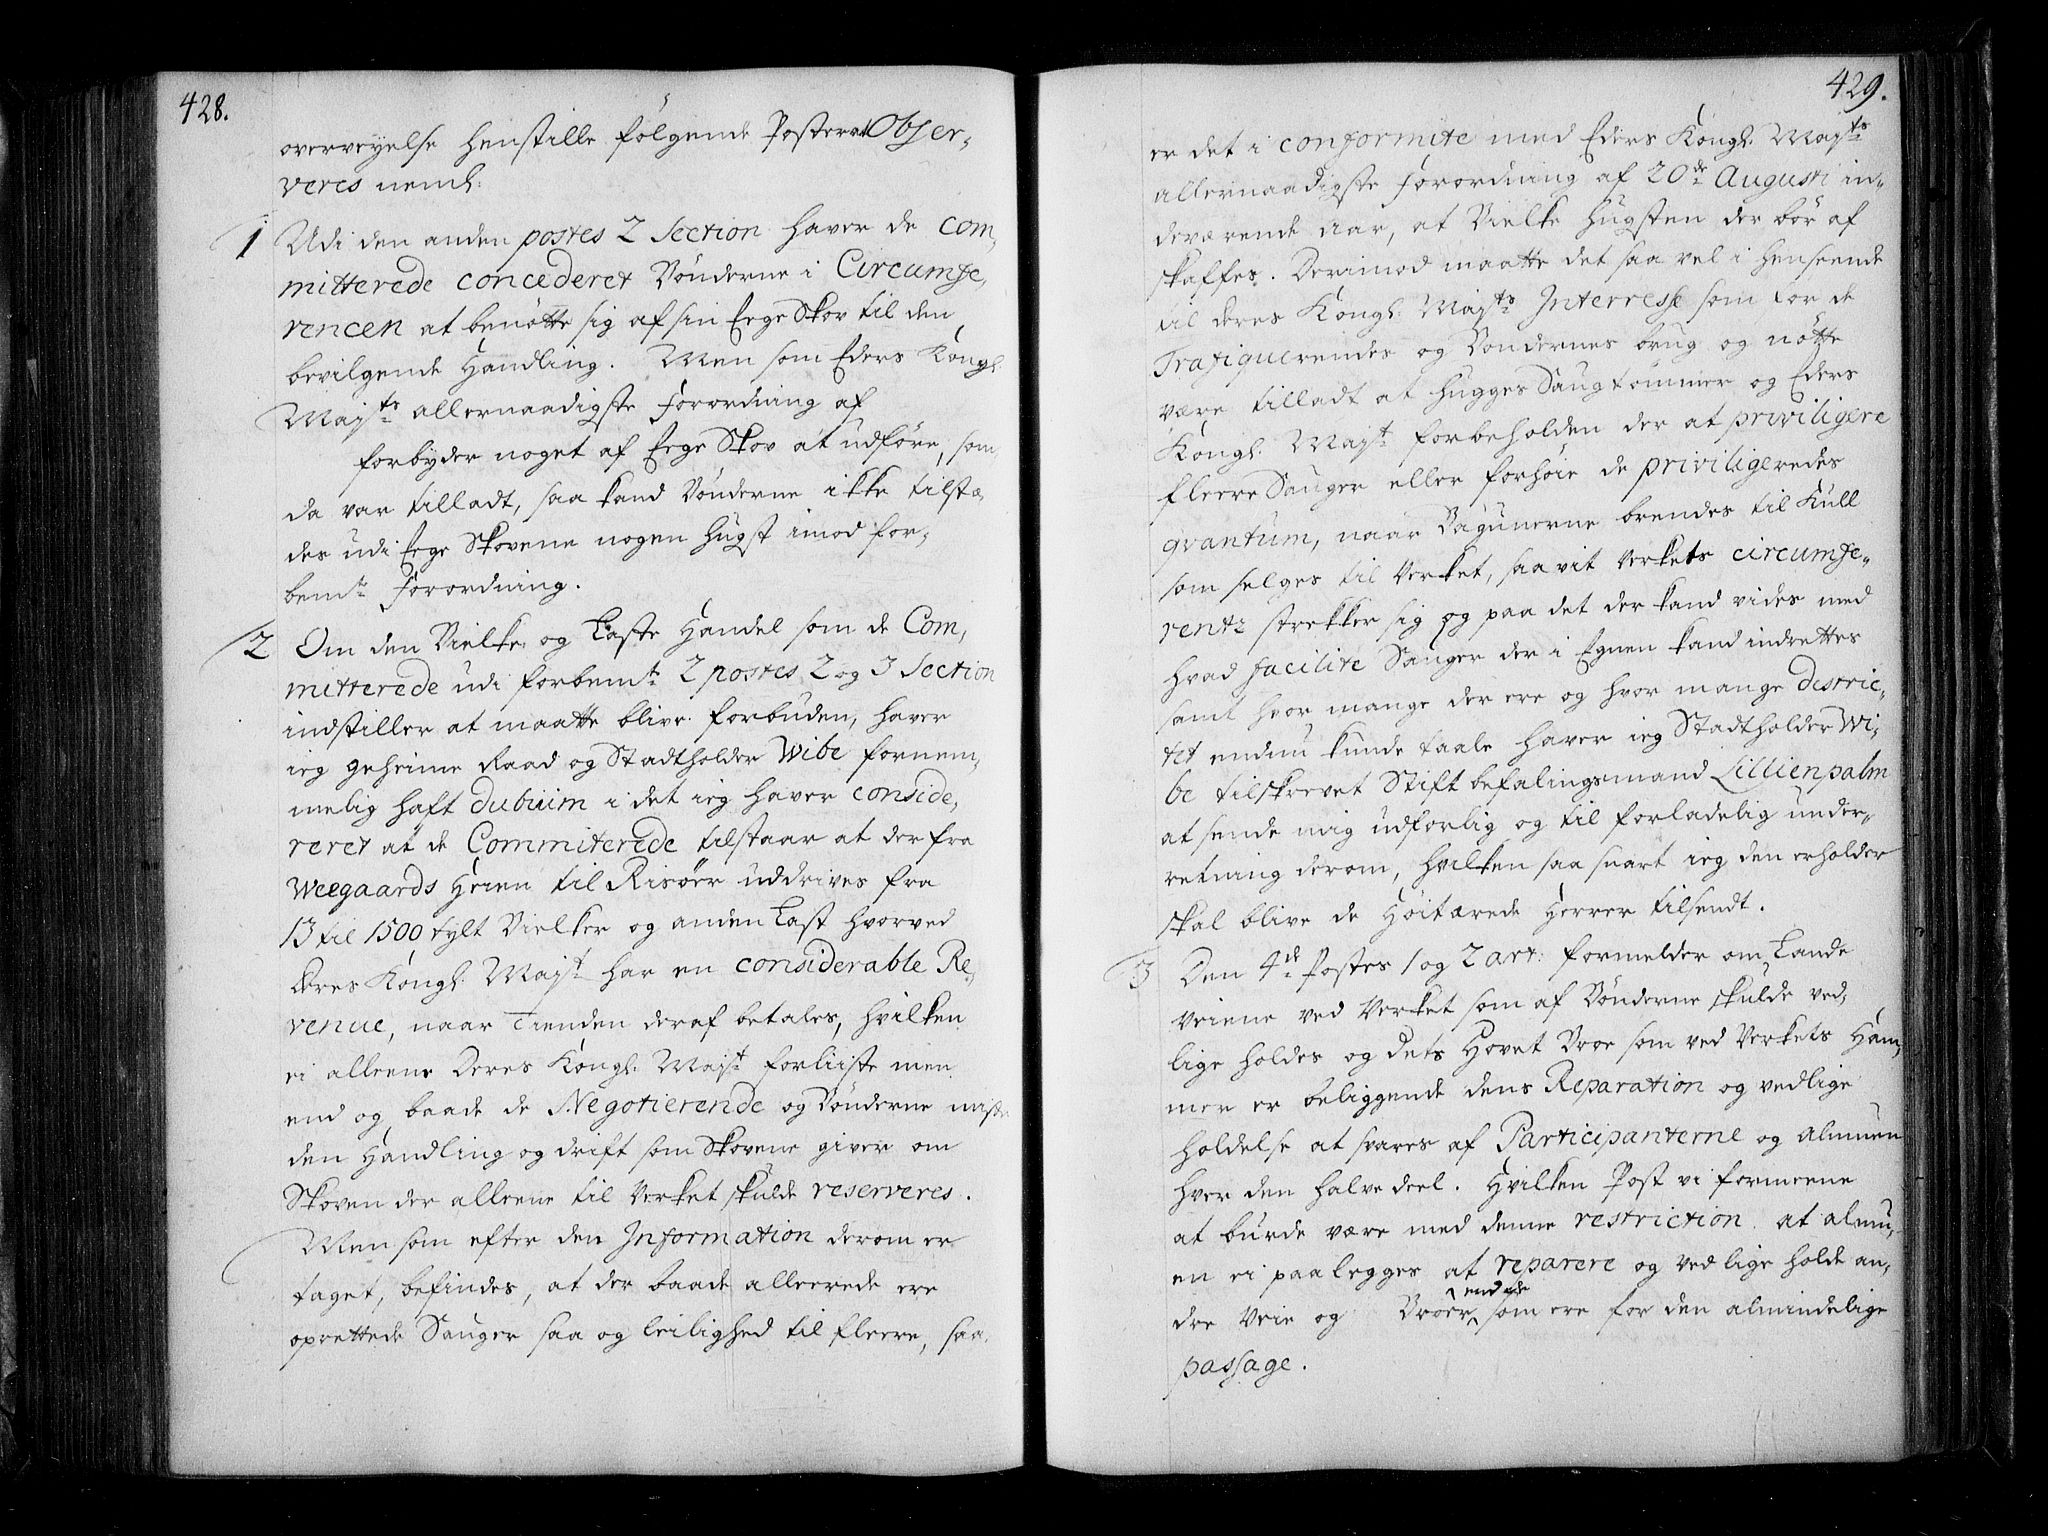 428.
overveyelse henstille følgende Poster at Obser-
veres neml:
1 Udi den anden postes 2 Section haver de Com-
mitterede concederet Bønderne i Circumfe-
rencen at benøtte sig af sin Eege Skov til den
bevilgende Handling. Men som Eders Kongl.
Mayts allernaadigste Forordning af
forbyder noget af Eege Skov at udføre, som
da var tilladt, saa kand Bønderne ikke tilstæ-
des udi Eege Skovene nogen Hugst imod for-
bemte Forordning.
2 Om den Bielke og Laste Handel som de Com-
mitterede udi forbemte 2 postes 2 og 3 Section
indstiller at maatte blive forbuden, haver
ieg geheime Raad og Stadtholder Wibe fornem-
melig haft dubium i det ieg haver conside-
reret at de Commiterede tilstaar at der fra
Weegaards Heien til Risøer uddrives fra
13 til 1500 tylt Bielker og anden Last hvorved
deres Kongl. Mayt har en considerable Re-
venue, naar Tienden deraf betales, hvilken
ei alleene Deres Kongl. Mayt forliiste men
end og baade de Negotierende og Bønderne miste
den Handling og drift som Skovene giver om
Skoven der alleene til Verket skulde reserveres.
Men som efter den Information derom er
taget, befindes, at der baade allerede ere
oprettede Sauger saa og leilighed til fleere, saa
429.
er det i conformite med Eders Kongl. Mayts
allernaadigste Forordning af 20de Augusti in-
deværende aar, at Bielke Hugsten der bør af
skaffes. Derimod maatte det saa vel i henseende
til deres Kongl. Mayts Interresse som for de
Trafiquerendes og Bøndernes brug og nøtte
være tilladt at hugges Saugtømmer og Eders
Kongl. Mayt forbeholden der at priviligere
fleere Sauger eller forhøie de priviligeredes
qvantum, naar Bagunerne brendes til Kull
som selges til Verket, saa vit Verkets circumfe-
rentz strekker sig og paa det der kand vides med
hvad facilite Sauger der i Egnen kand indrettes
samt hvor mange der ere og hvor mange destric-
tet endnu kunde taale haver ieg Stadtholder Wi-
be tilskrevet Stift befalingsmand Lillienpalm
at sende mig udførlig og til forladelig under-
retning derom, hvilken saa snart ieg den erholder
skal blive de Høitærede Herrer tilsendt.
3 Den 4de Postes 1 og 2 art: formelder om Lande
Veiene ved Verket som af Bønderne skulde ved-
lige holdes og dets Hovet Broe som ved Verkets Ham-
mer er beliggende dens Reparation og vedlige
holdelse at svares af Participanterne og Almuen
hver den halve deel. Hvilken Post vi formeene
at burde være med denne restriction at almu-
en ei paalegges at reparere og vedlige holde an-
dre Veie og Broer end de som ere for den almindelige
passage.